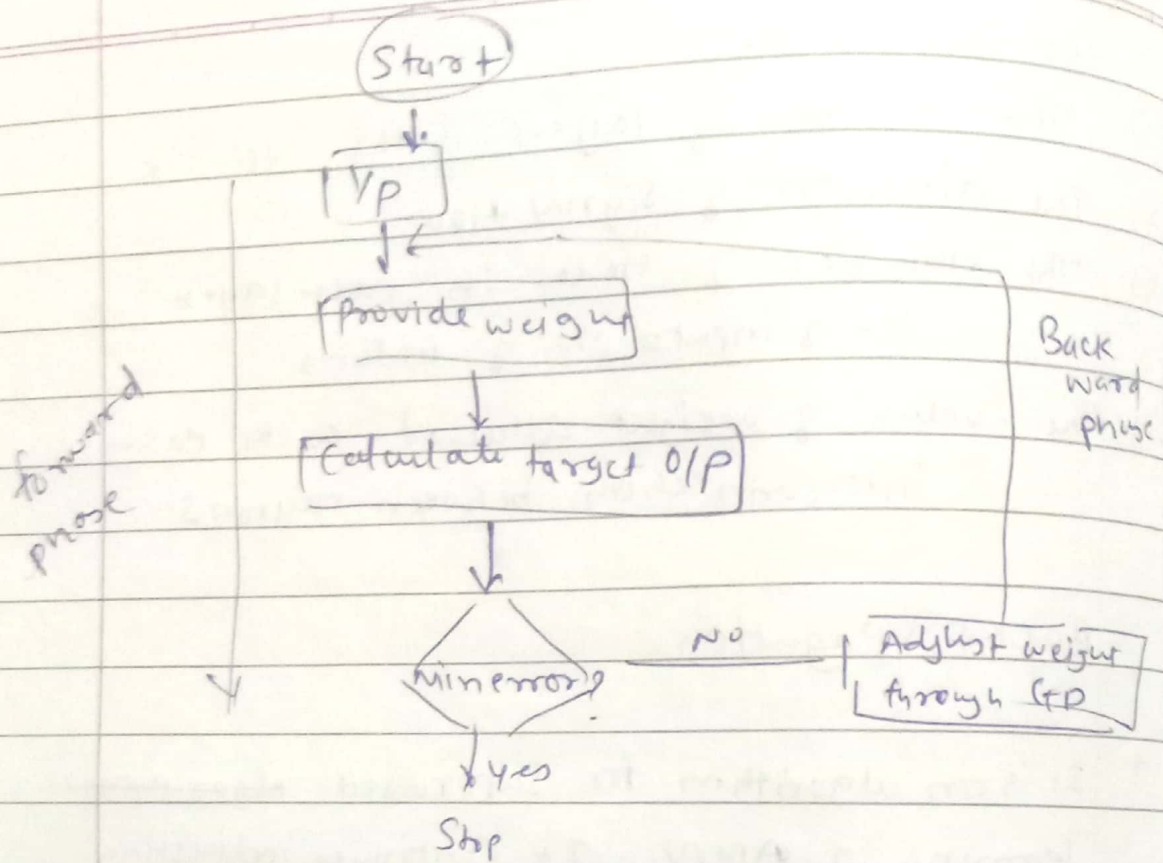 Start
I/p
Provide weight
Calculate target O/P
Min error?
NO
Adjust weight
through GD
yes
Stop
forward
phase
Back
ward
phase